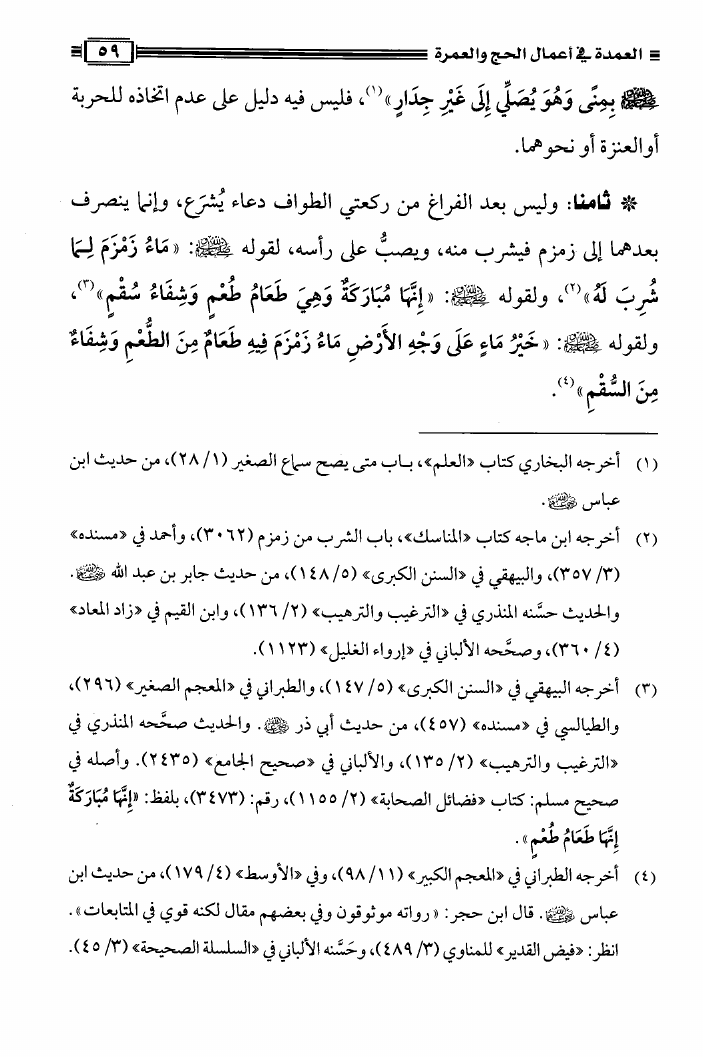 العمدة في أعمال الحج والعمرة ٥٩
ﷺ بِمِنًى وَهُوَ يُصَلِّي إِلَى غَيْرِ جِدَارٍ»(١)، فليس فيه دليل على عدم اتخاذه للحربة
أوالعنزة أو نحوهما.
* ثامنا: وليس بعد الفراغ من ركعتي الطواف دعاء يُشرَع، وإنما ينصرف
بعدهما إلى زمزم فيشرب منه، ويصبُّ على رأسه، لقوله ﷺ: «مَاءُ زَمْزَمَ لِـمَا
شُرِبَ لَهُ»(٢)، ولقوله ﷺ: «إِنَّهَا مُبَارَكَةٌ وَهِيَ طَعَامُ طُعْمٍ وَشِفَاءُ سُقْمٍ»(٣)،
ولقوله ﷺ: «خَيْرُ مَاءٍ عَلَى وَجْهِ الأَرْضِ مَاءُ زَمْزَمَ فِيهِ طَعَامٌ مِنَ الطُّعْمِ وَشِفَاءٌ
مِنَ السُّقْمِ»(٤).
(١) أخرجه البخاري كتاب «العلم»، باب متى يصح سماع الصغير (١/ ٢٨)، من حديث ابن
عباس رضي الله عنهما.
(٢) أخرجه ابن ماجه كتاب «المناسك»، باب الشرب من زمزم (٣٠٦٢)، وأحمد في «مسنده»
(٣/ ٣٥٧)، والبيهقي في «السنن الكبرى» (٥/ ١٤٨)، من حديث جابر بن عبد الله رضي الله عنهما.
والحديث حسَّنه المنذري في «الترغيب والترهيب» (٢/ ١٣٦)، وابن القيم في «زاد المعاد»
(٤/ ٣٦٠)، وصحَّحه الألباني في «إرواء الغليل» (١١٢٣).
(٣) أخرجه البيهقي في «السنن الكبرى» (٥/ ١٤٧)، والطبراني في «المعجم الصغير» (٢٩٦)،
والطيالسي في «مسنده» (٤٥٧)، من حديث أبي ذر رضي الله عنه. والحديث صحَّحه المنذري في
«الترغيب والترهيب» (٢/ ١٣٥)، والألباني في «صحيح الجامع» (٢٤٣٥). وأصله في
صحيح مسلم: كتاب «فضائل الصحابة» (٢/ ١١٥٥)، رقم: (٣٤٧٣)، بلفظ: «إِنَّهَا مُبَارَكَةٌ
إِنَّهَا طَعَامُ طُعْمٍ».
(٤) أخرجه الطبراني في «المعجم الكبير» (١١/ ٩٨)، وفي «الأوسط» (٤/ ١٧٩)، من حديث ابن
عباس رضي الله عنهما. قال ابن حجر: «رواته موثوقون وفي بعضهم مقال لكنه قوي في المتابعات».
انظر: «فيض القدير» للمناوي (٣/ ٤٨٩)، وحَسَّنه الألباني في «السلسلة الصحيحة» (٣/ ٤٥).